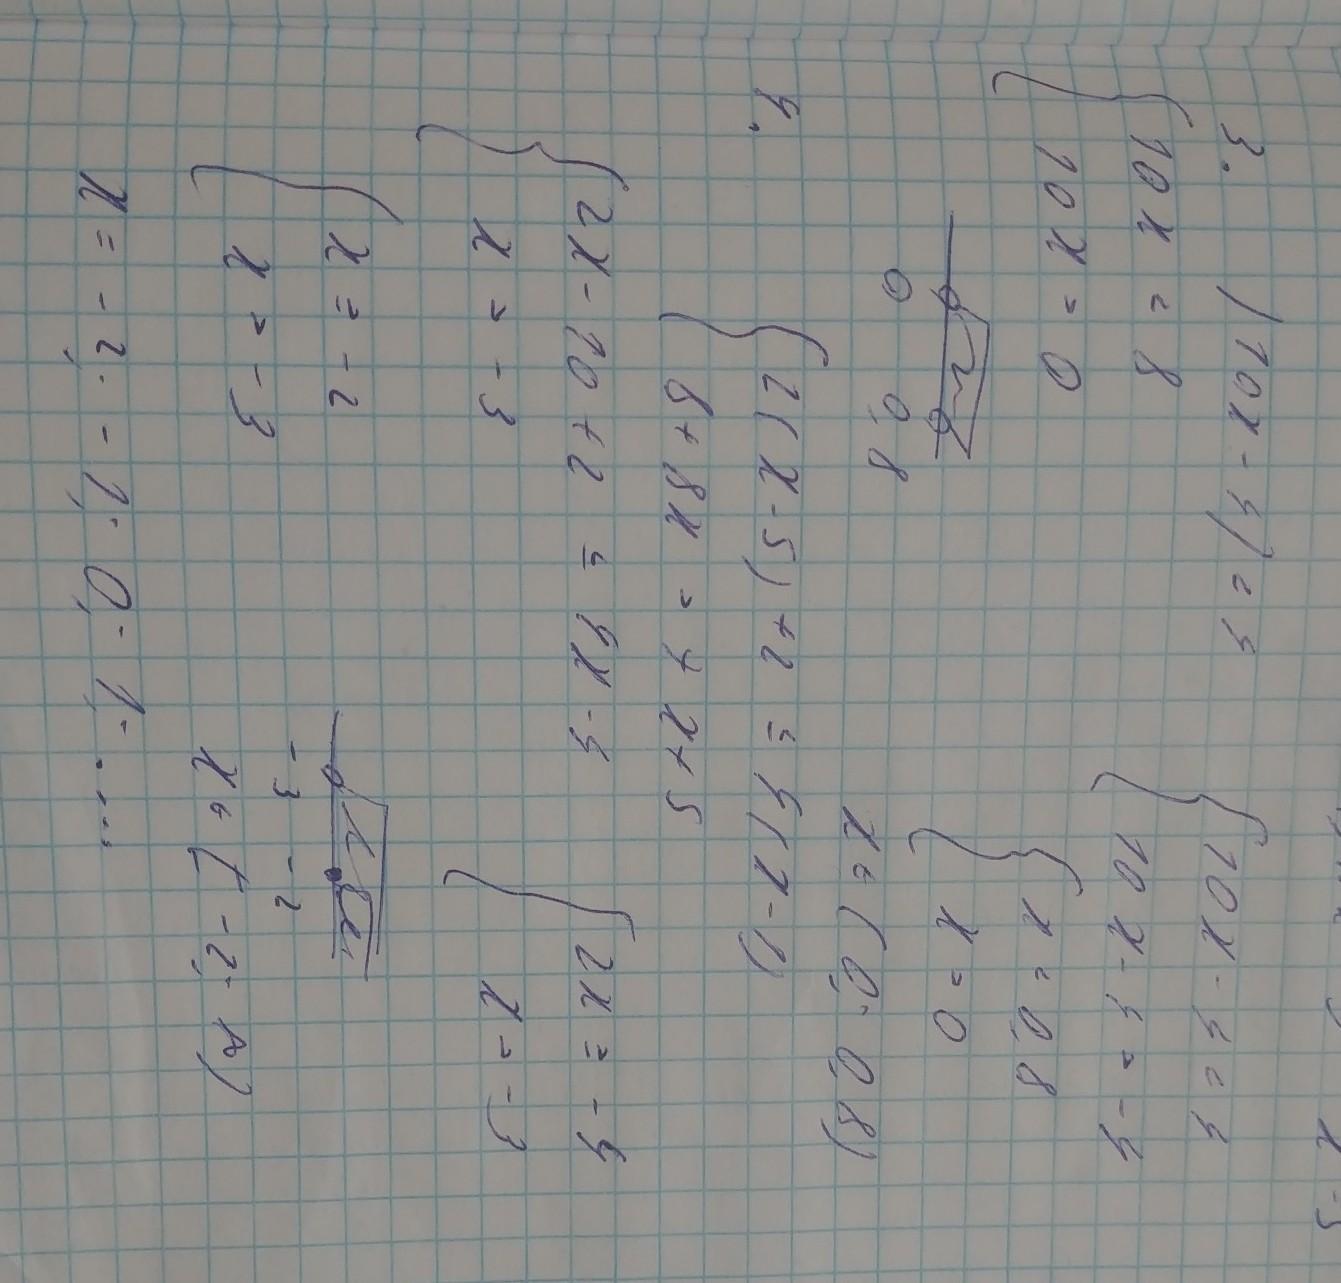 3. |10x - 4| = 4
{ 10x - 4 = 4
10x - 4 = -4
{ 10x = 8
10x = 0
{ x = 0,8
x = 0
0 0,8
x = (0; 0,8)
4. { 2(x-5)+2 ≤ 4(x-1)
6+8x = 7x+5
{ 2x-10+2 ≤ 4x-4
x = -3
{ 2x = -4
x = -3
{ x = -2
x = -3
-3 -2
x = -2; -1; 0; 1; ....